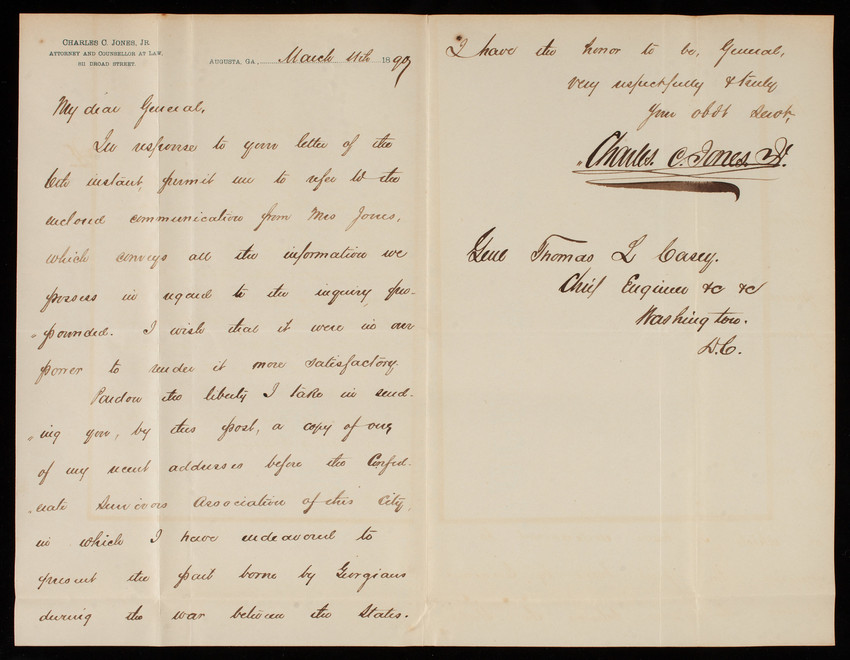 CHARLES C. JONES, JR.
ATTORNEY AND COUNSELLOR AT LAW,
BROAD STREET.
AUGUSTA, GA., March 11th 1890
My dear General,
In response to your letter of the
6th instant, permit me to refer to the
inclosed communication from Mrs Jones,
which conveys all the information we
possess in regard to the inquiry pro-
„pounded. I wish that it were in our
power to render it more satisfactory.
Pardon the liberty I take in send-
„ing you, by this post, a copy of one
of my recent addresses before the Confed-
„erate Survivors Association of this City,
in which I have endeavored to
present the part borne by Georgians
during the war between the States.
I have the honor to be, General,
very respectfully & truly
Your obdt Servt,
Charles. C. Jones. Jr.
Genl Thomas L Casey.
Chief Engineer &c &c
Washington.
D.C.